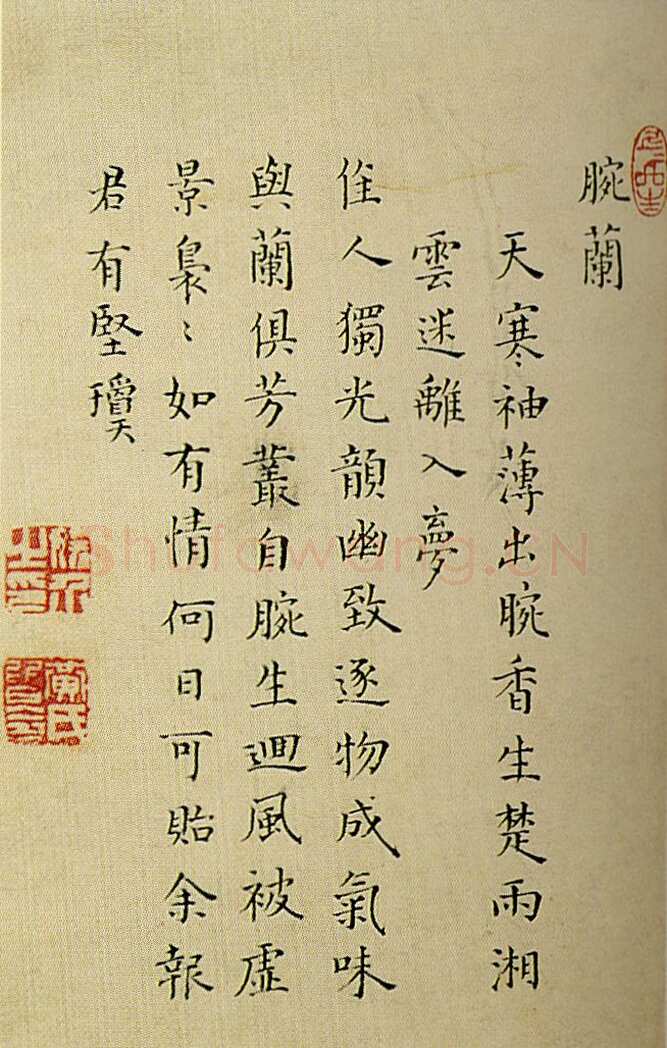 腕蘭
天寒袖薄出腕香生楚雨湘
雲迷離入夢
佳人獨光韻幽致逐物成氣味
與蘭俱芳叢自腕生迴風被虛
景裊〻如有情何日可貽余報
君有堅瓊
黃氏
Shufawang.CN